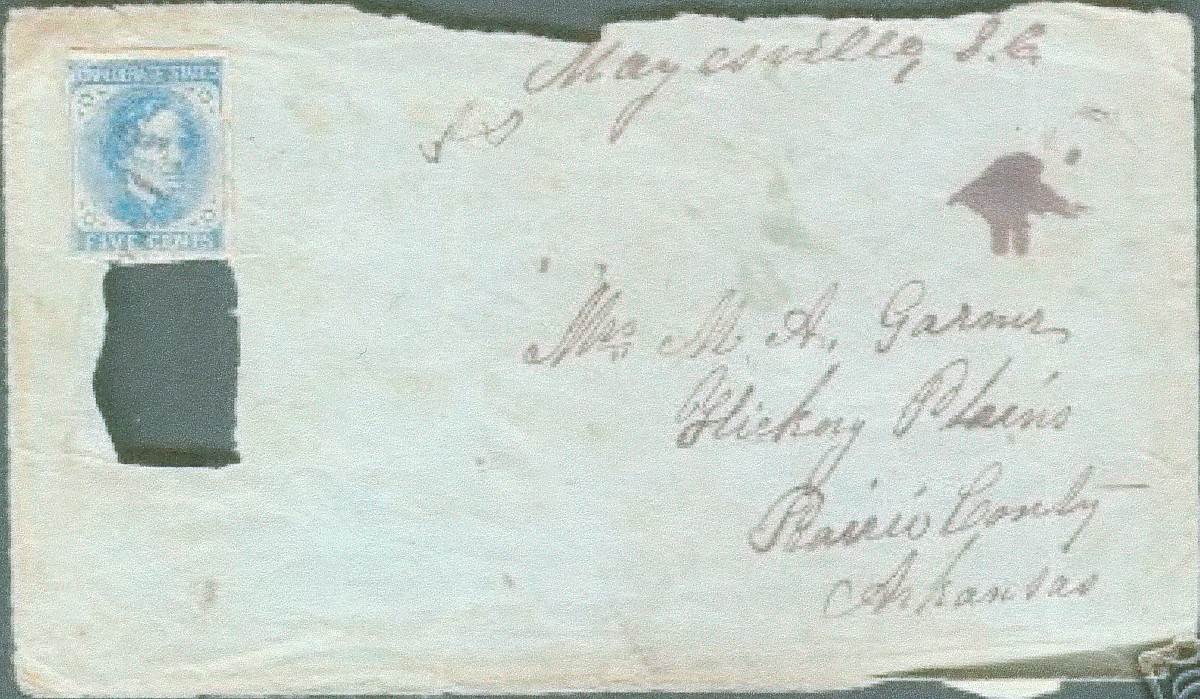 Mayesville, S.C.
CONFEDERATE STATES
FIVE CENTS
Mrs. M. A. Garner
Hickory Plains
Prairie Conty
Arkansas